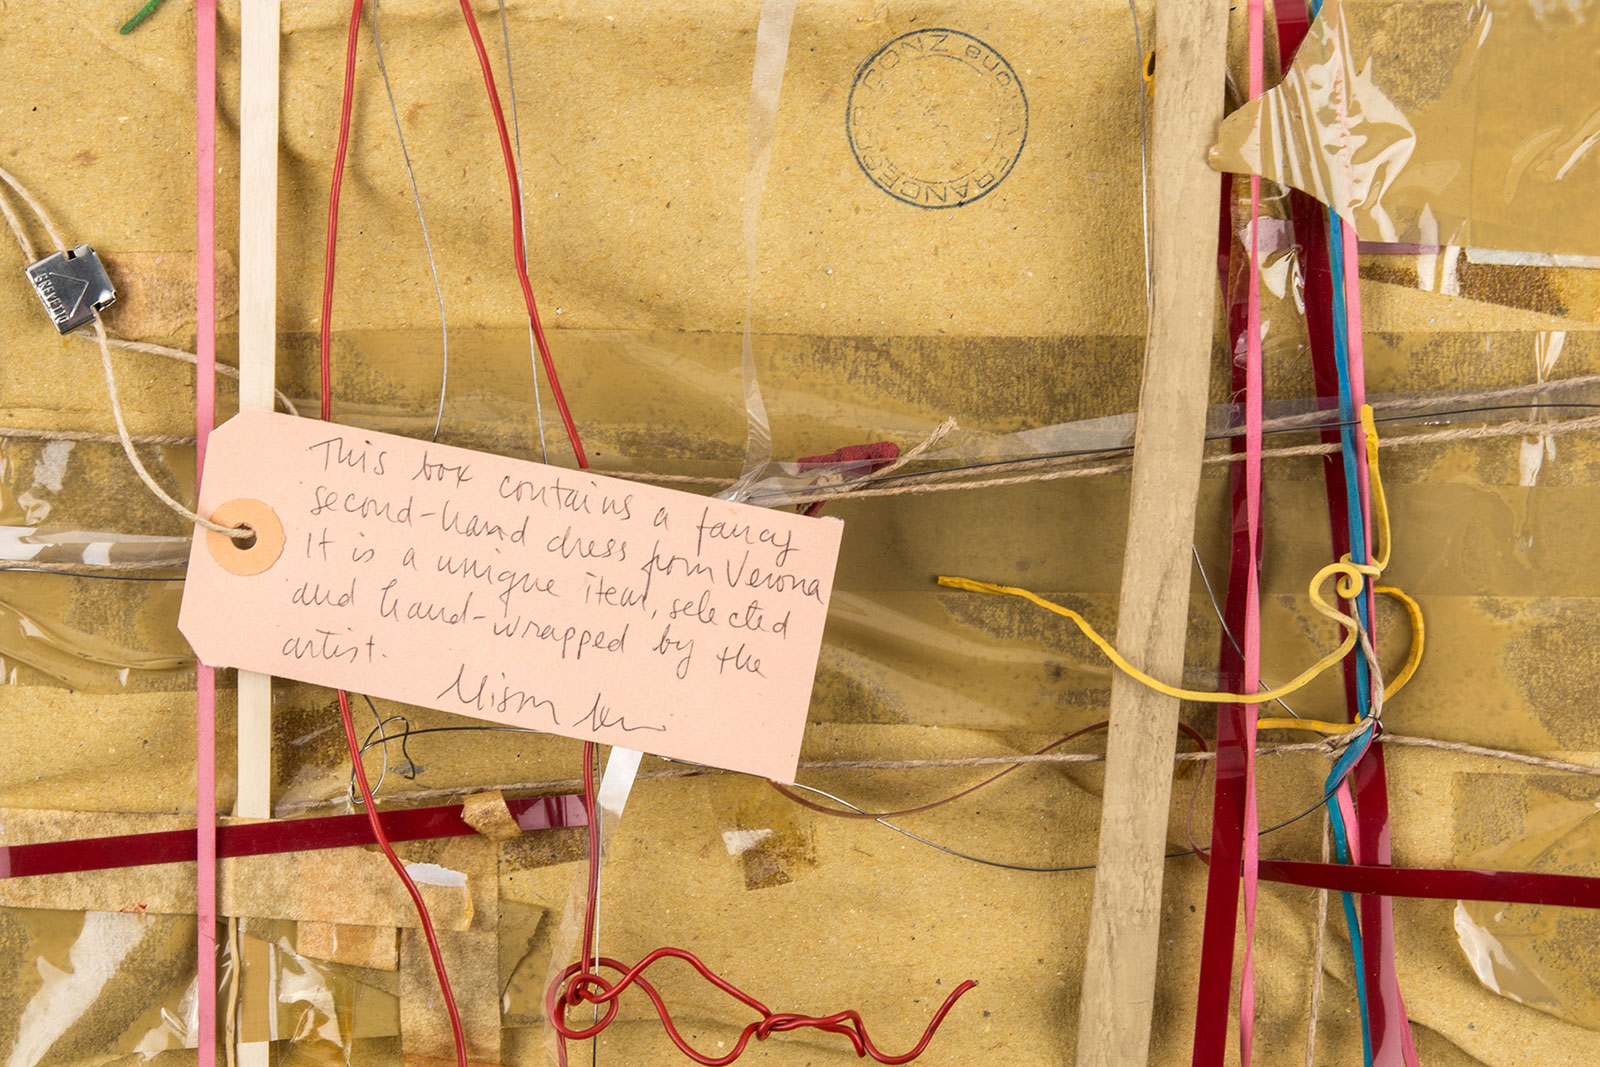 This box contains a fancy
second-hand dress from Verona
It is a unique item, selected
and hand-wrapped by the
artist.
BREVETTO